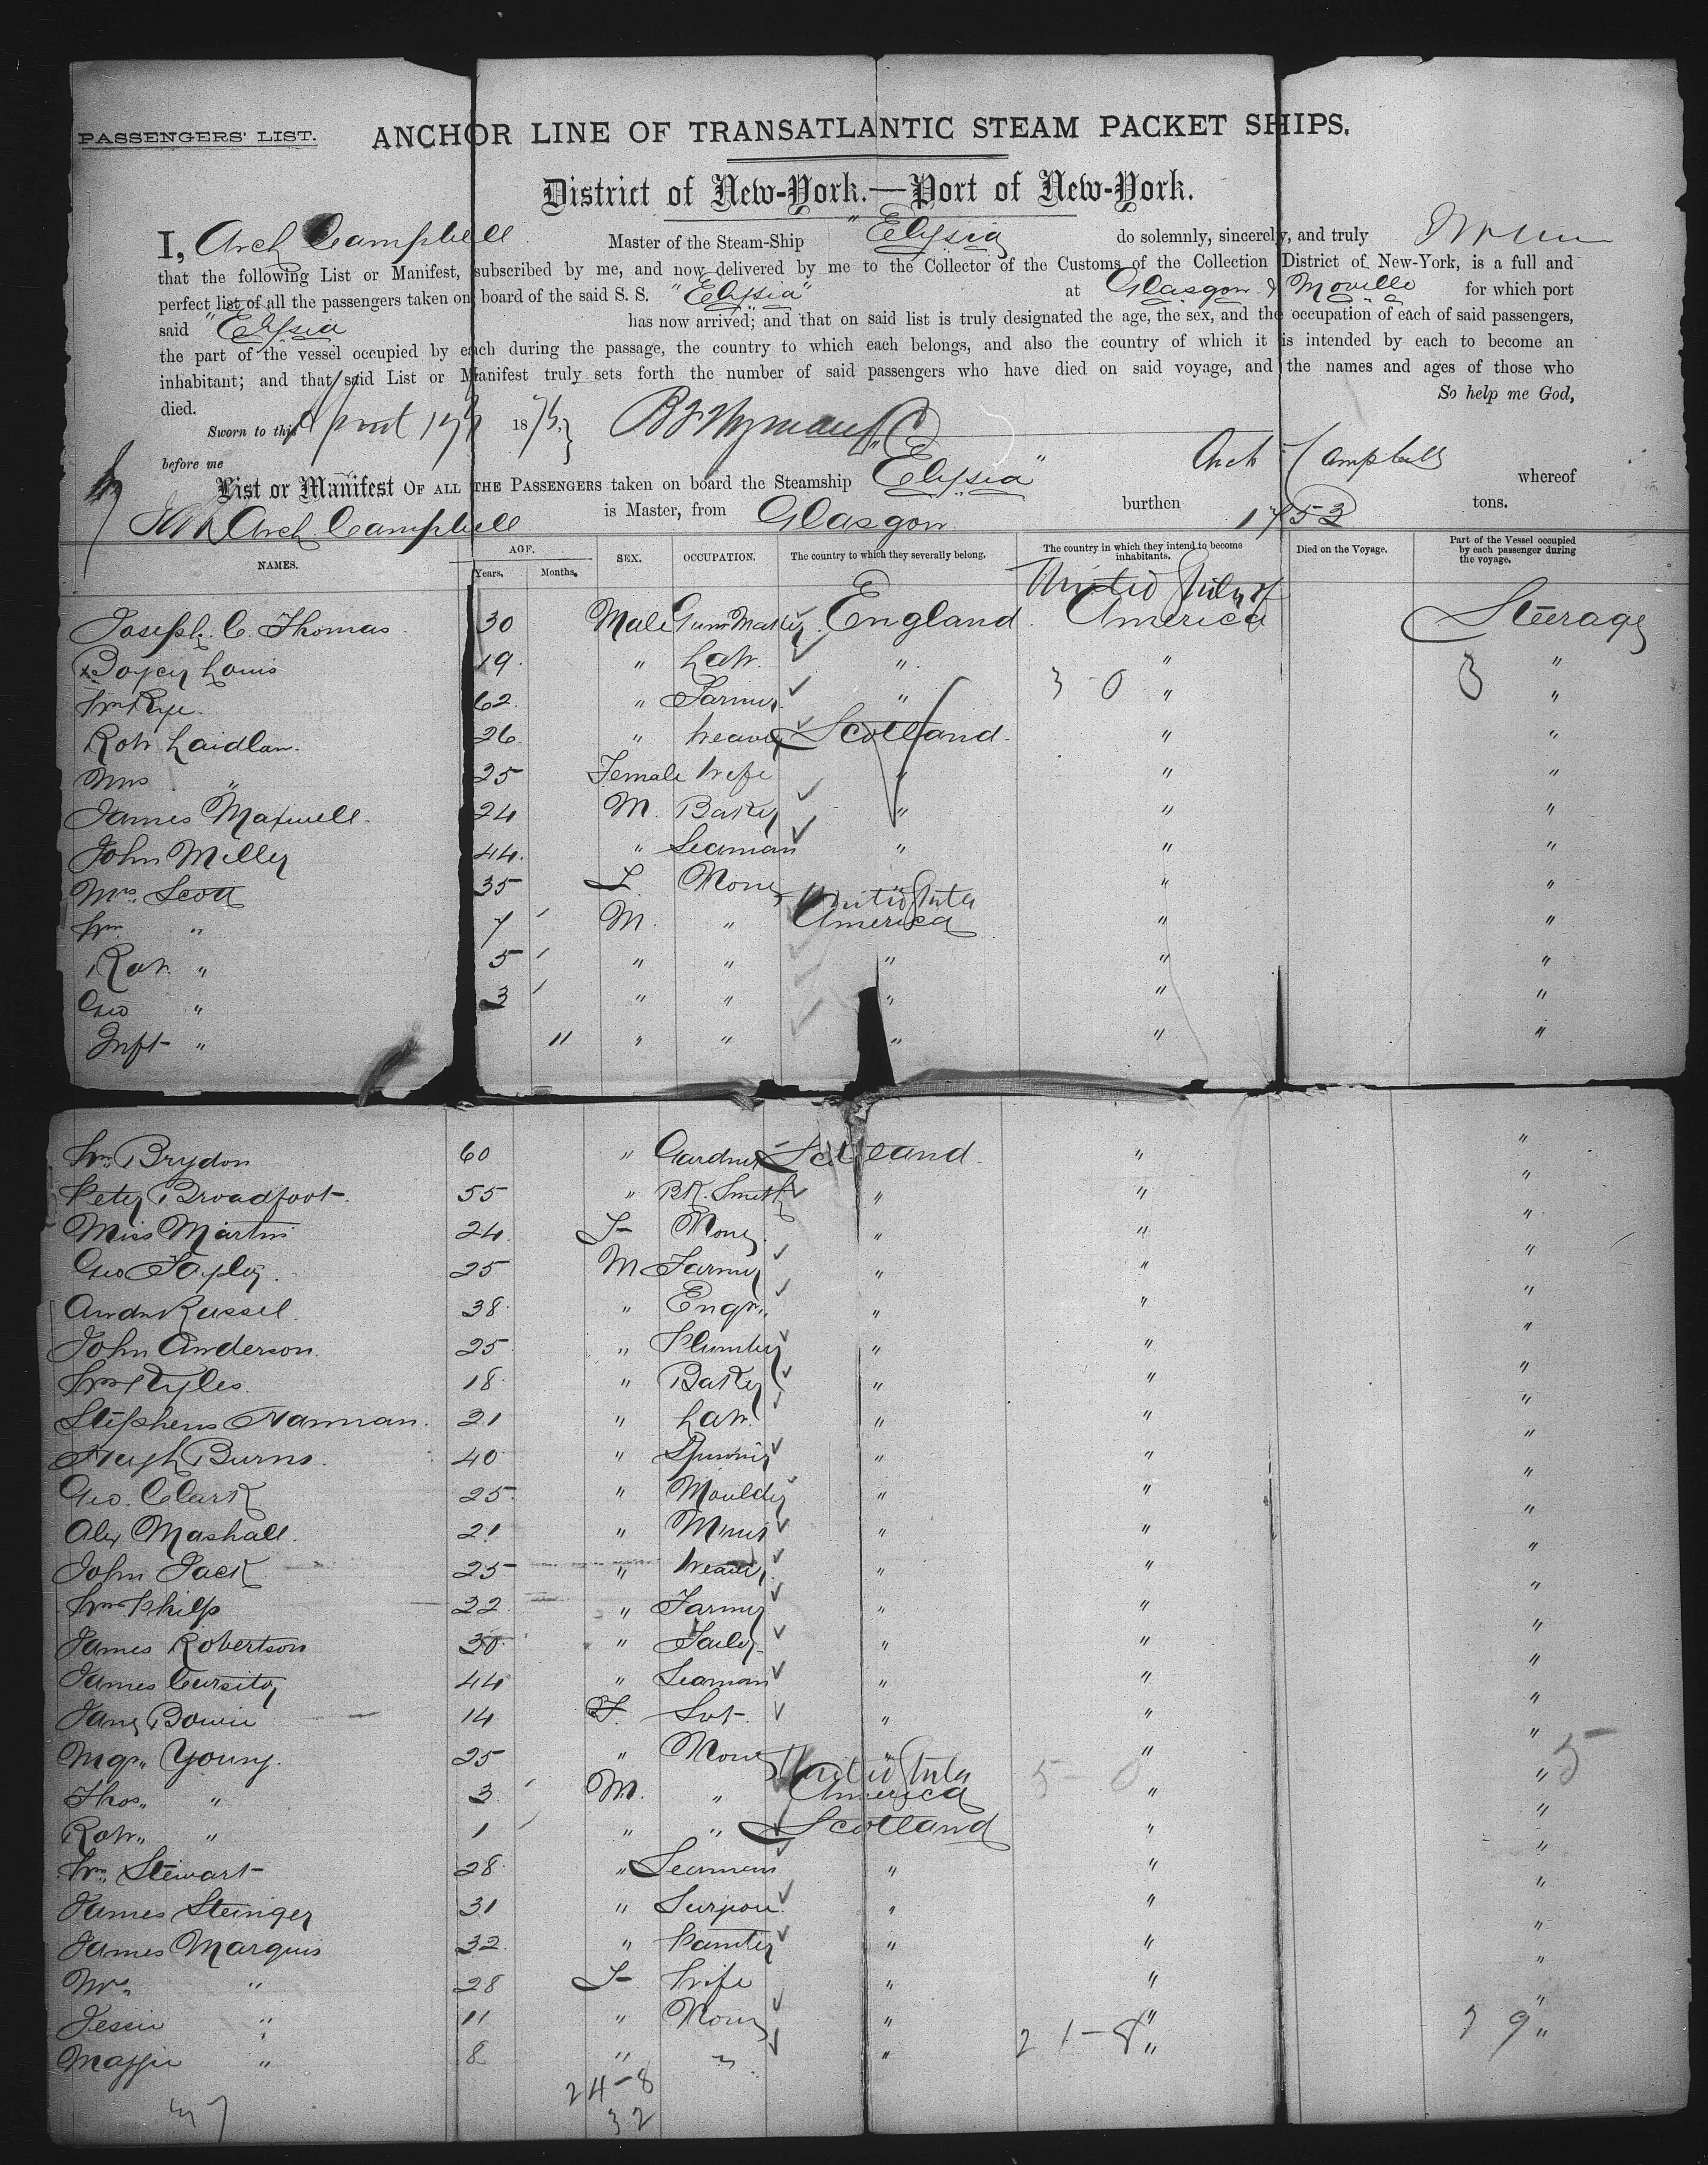 PASSENGERS' LIST. ANCHOR LINE OF TRANSATLANTIC STEAM PACKET SHIPS.
District of New-York.—Port of New-York.
I, Arch Campbell Master of the Steam-Ship "Elysia do solemnly, sincerely, and truly
that the following List or Manifest, subscribed by me, and now delivered by me to the Collector of the Customs of the Collection District of New-York, is a full and
perfect list of all the passengers taken on board of the said S. S. "Elysia" at Glasgow & Moville for which port
said "Elysia has now arrived; and that on said list is truly designated the age, the sex, and the occupation of each of said passengers,
the part of the vessel occupied by each during the passage, the country to which each belongs, and also the country of which it is intended by each to become an
inhabitant; and that said List or Manifest truly sets forth the number of said passengers who have died on said voyage, and the names and ages of those who
died. So help me God,
Sworn to this 18
before me Arch Campbell
List or Manifest OF ALL THE PASSENGERS taken on board the Steamship "Elysia" whereof
Arch. Campbell is Master, from Glasgow burthen 1753 tons.
NAMES. AGE. Years. Months. SEX. OCCUPATION. The country to which they severally belong. The country in which they intend to become inhabitants. Died on the Voyage. Part of the Vessel occupied by each passenger during the voyage.
Joseph C. Thomas 30 Male Gun Maker England United States of America Steerage
Louis 19. " Labr. " " "
Wm 62 " Farmer " 3 0 " 3 "
Robt Laidlaw. 26 " Weaver Scotland " "
Mrs " 25 Female Wife " " "
James Maxwell. 24 M. Baker " " "
John Miller 44. " Seaman " " "
Mrs. Scott 35 F. None " " "
Wm " 7 M. " United States America " "
Robt. " 5 " " " " "
Geo " 3 " " " " "
Inft " 11 " " " " "
Wm. Brydon 60 " Gardner Scotland " "
Peter Broadfoot. 55 " Bk. Smith " " "
Miss Martin 24. F None " " "
Geo Tapley. 25 M Farmer " " "
Andw Russel. 38. " Engr. " " "
John Anderson. 25 " Plumber " " "
Wm Kyles. 18 " Baker " " "
Stephens Hannan. 21 " Labr. " " "
Hugh Burns. 40 " " " "
Geo. Clark 25. " Moulder " " "
Alex Mashall. 21 " Miner " " "
John Jack 25 " Weaver " " "
Wm Philp 22 " Farmer " " "
James Robertson 30 " " " "
James Cursiter 44 " Seaman " " "
Jane Bowie 14 F. Svt. " " "
Mgr. Young. 25 " None " " "
Thos. " 3 M. " United States America 5-0 " " 5
Robt. " 1 " " Scotland " "
Wm. Stewart 28 " Seaman " " "
James Steinger 31 " " " "
James Marquis 32 " Painter " " "
Mrs. " 28 F Wife " " "
Jessie " 11 " None " " "
Maggie " 8 " " " 21-8 " 29 "
24-8
37 32